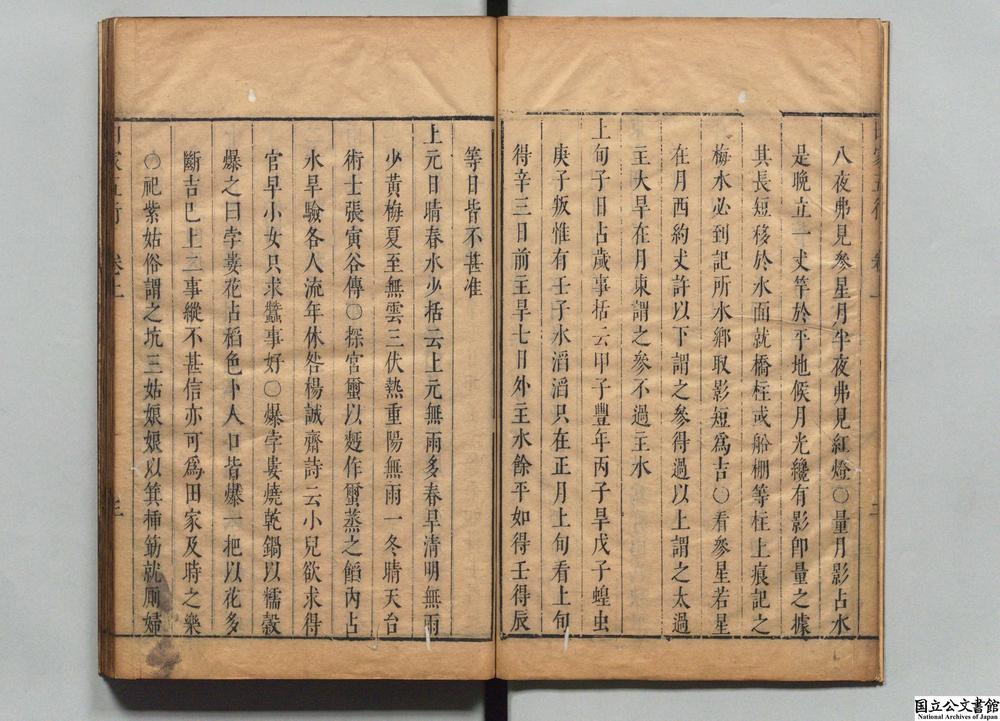 八夜弗見參星月半夜弗見紅燈○量月影占水
是晚立一丈竿於平地候月光纔有影卽量之據
其長短移於水面就橋柱或船棚等柱上痕記之
梅水必到記所水鄉取影短爲吉○看參星若星
在月西約丈許以下謂之參得過以上謂之太過
主大旱在月東謂之參不過主水
上旬子日占歲事括云甲子豐年丙子旱戊子蝗虫
庚子叛惟有壬子水滔滔只在正月上旬看上旬
得辛三日前主旱七日外主水餘平如得壬得辰
等日皆不甚准
上元日晴春水少括云上元無雨多春旱清明無雨
少黃梅夏至無雲三伏熱重陽無雨一冬晴天台
術士張寅谷傳○探官璽以麪作璽蒸之餡內占
水旱驗各人流年休咎楊誠齋詩云小兒欲求得
官早小女只求蠶事好○爆孛婁燒乾鍋以糯穀
爆之曰孛婁花占稻色卜人口皆爆一把以花多
斷吉已上二事縱不甚信亦可爲田家及時之樂
○祀紫姑俗謂之坑三姑娘娘以箕插筯就厠婦
田家五行
卷上
三
国立公文書館
National Archives of Japan